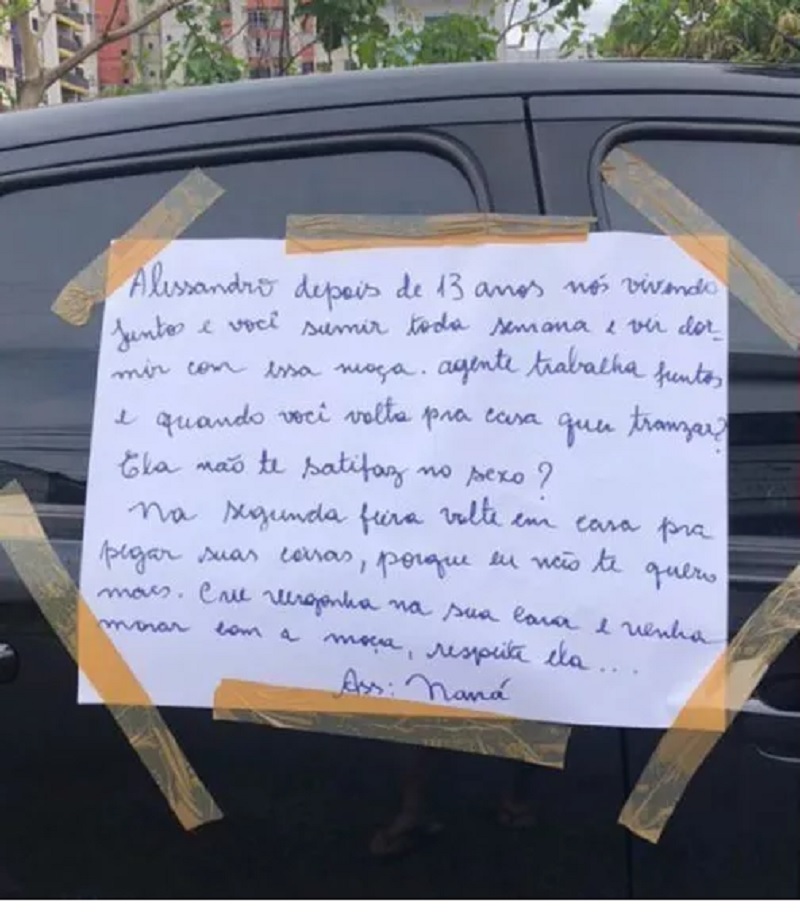 Alessandro depois de 13 anos nós vivendo
juntos e você sumir toda semana e vir dor-
mir com essa moça. agente trabalha juntos
e quando você volta pra casa quer tranzar?
Ela não te satifaz no sexo?
Na segunda feira volte em casa pra
pegar suas coisas, porque eu não te quero
mais. Crie vergonha na sua cara e venha
morar com a moça, respeita ela...
Ass: Naná